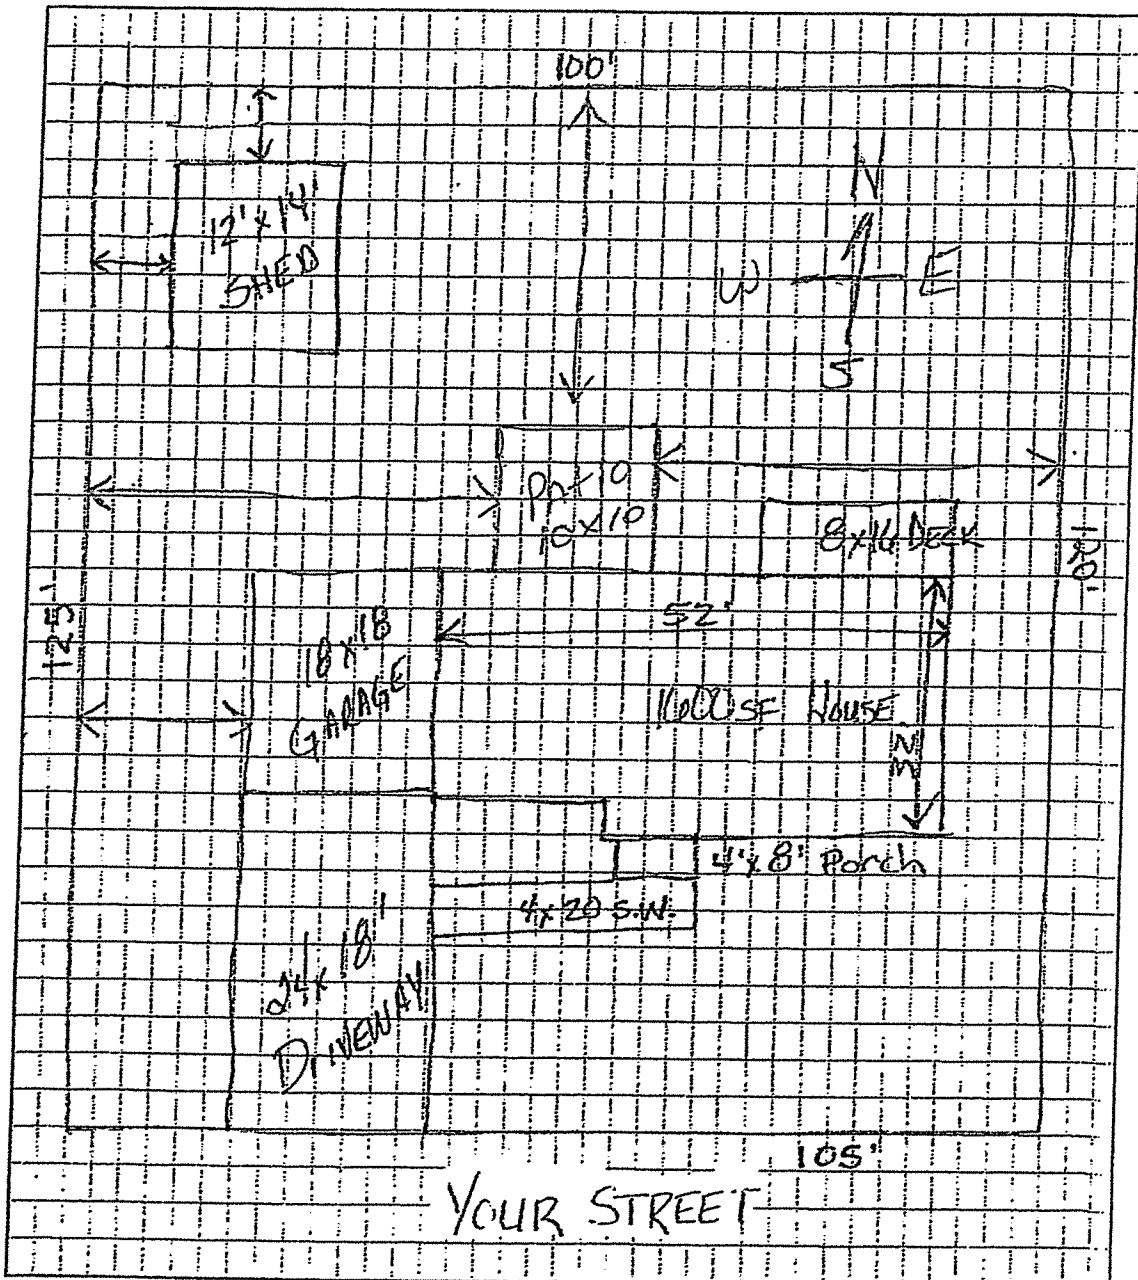 100'
N
W E
S
12' x 14'
SHED
PATIO
10 x 10
8x16 DECK
125'
120'
52'
18 x 18
GARAGE
1600 SF HOUSE
32'
4' x 8' Porch
4 x 20 S.W.
24 x 18'
DRIVEWAY
105'
YOUR STREET